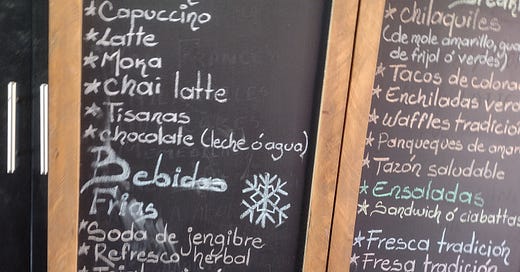 *Capuccino
*Latte
*Moka
*Chai latte
*Tisanas
*chocolate (leche ó agua)
Bebidas
Frias
*Soda de jengibre
*Refresco herbal
*chilaquiles
(de mole amarillo,
de frijol o verdes)
*Tacos de
*Enchiladas
*Waffles
*Panqueques de
*Tazón saludable
*Ensaladas
*Sandwich ó ciabattas
*Fresca tradición
*Fresa tradición